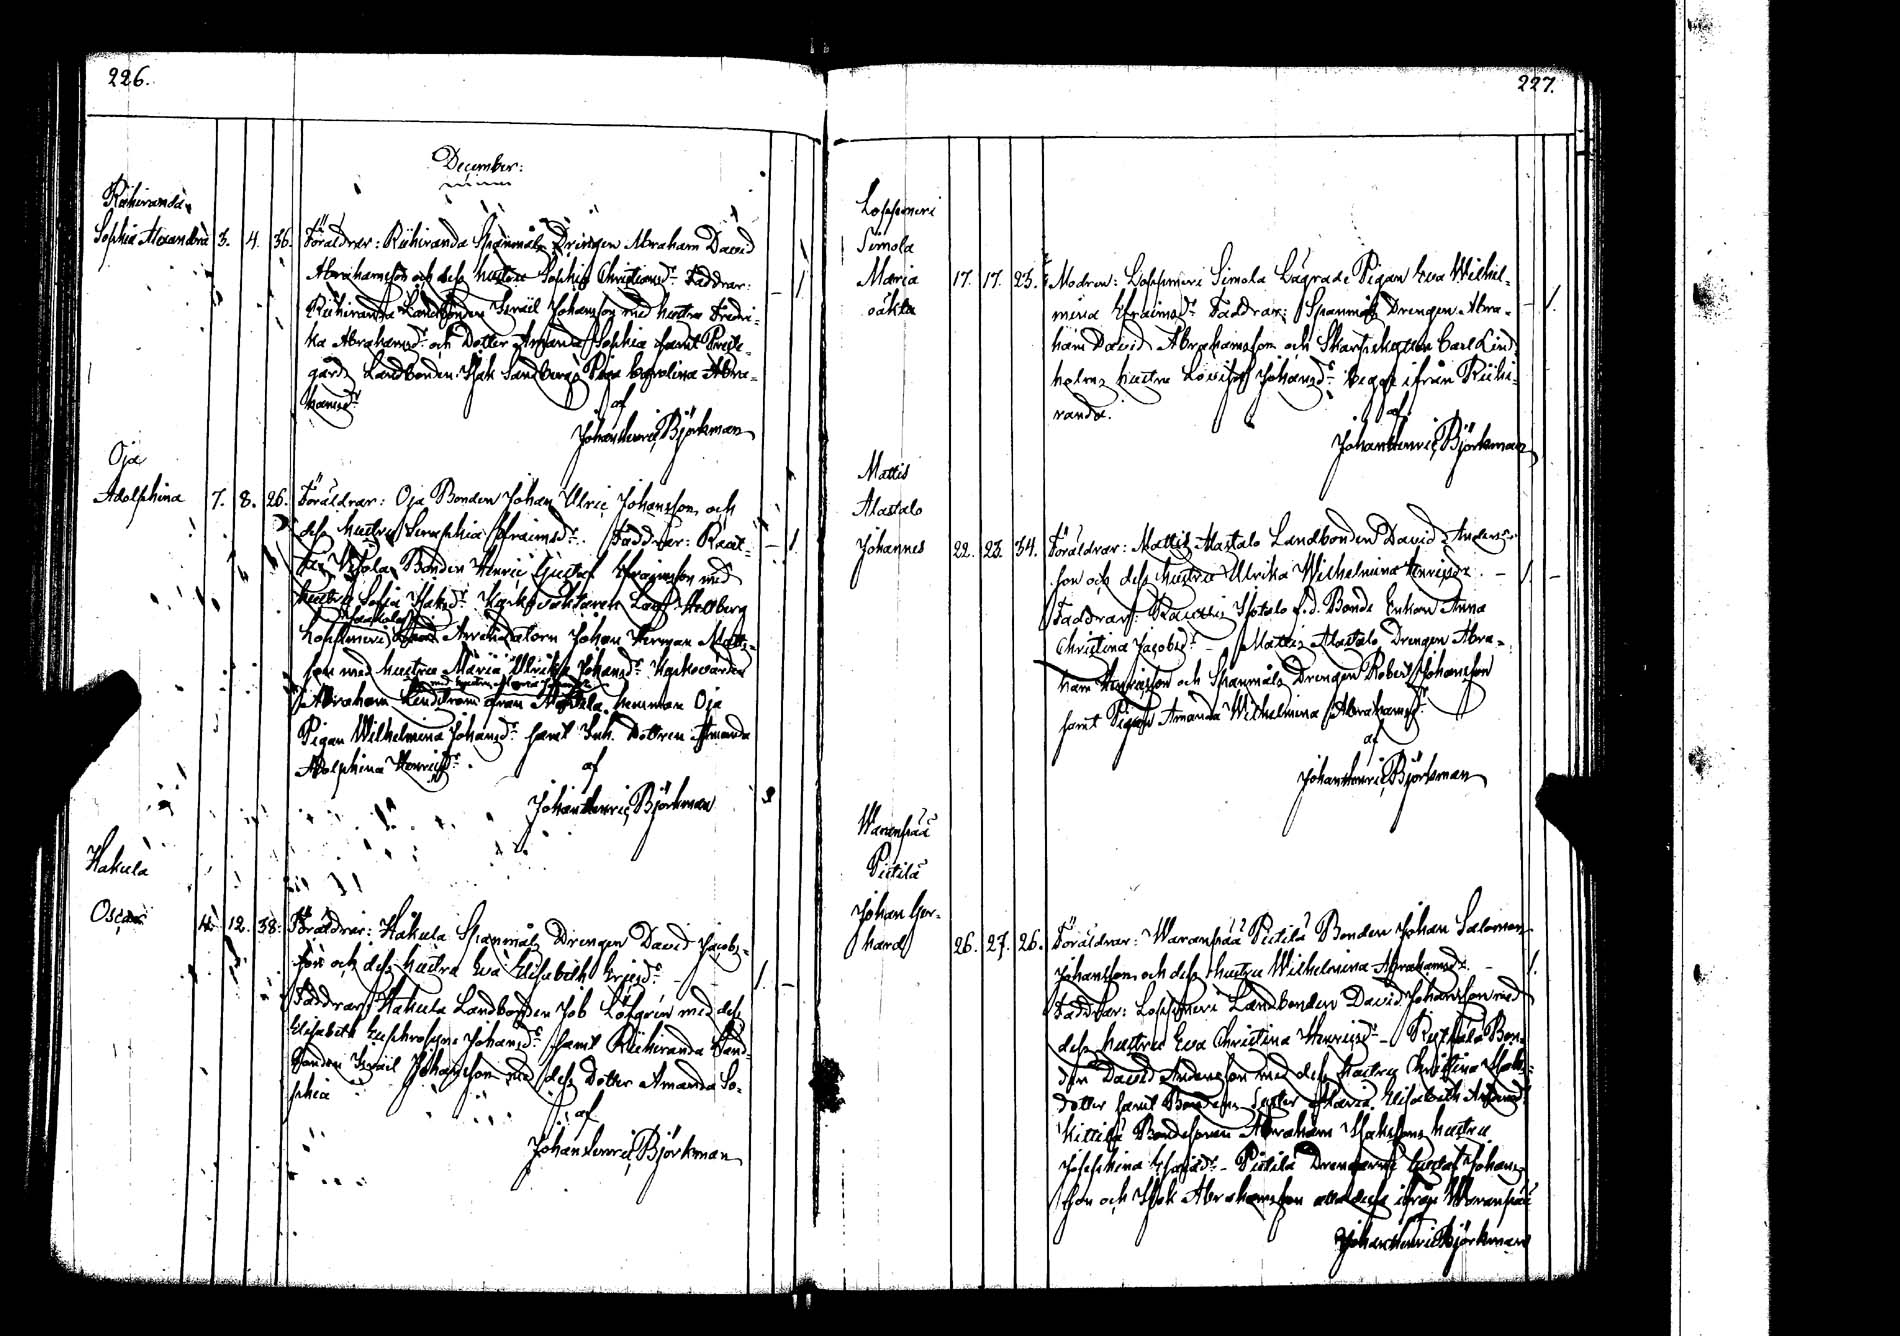 226.
December:
Riihiranda
Sophia Alexandra 3. 4. 36. Föräldrar: Riihiranda Spanmåls Drengen Abraham David
Abrahamsson och dess hustru Sophia Christiansdr. Faddrar:
Riihiranda Landbonden Israël Johansson med hustru Fredri-
ka Abrahamsdr. och Dotter Amanda Sophia samt
gårds Landbonden Isak Sandbergs Piga Carolina Abra-
hamsdr.
af
Johan Henric Björkman
Oja
Adolphina 7. 8. 26. Föräldrar: Oja Bonden Johan Ulric Johansson och
dess hustru Seraphia Efraimsdr. Faddrar:
Bonden Henric Gustaf Efraimsson med
hustru Isaksdr.
Loppimeri Arrendatorn Johan Herman Matts-
son med hustru Maria Ulrika Johansdr.
Abraham Lindström från hemman Oja
Pigan Wilhelmina Johansdr. samt Inh. Dottren Amanda
Adolphina Henricsdr.
af
Johan Henric Björkman
Hakula
Oscar 4. 12. 38. Föräldrar: Hakula Spanmåls Drengen David Jacobs-
son och dess hustru Eva Elisabeth Ericsdr.
Faddrar: Hakula Landbonden Job Löfgren med dess
Elisabeth Euphrosyne Johansdr. samt Riihiranda Land-
bonden Israël Johansson med dess Dotter Amanda So-
phia
af
Johan Henric Björkman
227.
Loppimeri
Simola
Maria 17. 17. 23. Modren: Loppimeri Simola Lägrade Pigan Eva Wilhel-
oäkta mina Efraimsdr. Faddrar: Spanmåls Drengen Abra-
ham David Abrahamsson och Skarpskytten Carl Lind-
holms hustru Lovisa Johansdr. begge ifrån Riihi-
randa.
af
Johan Henric Björkman
Mattis
Alastalo
Johannes 22. 23. 34. Föräldrar: Mattis Alastalo Landbonden David Anders-
son och dess hustru Ulrika Wilhelmina Henricsdr.
Faddrar: f.d. Bonde Enkan Anna
Christina Jacobsdr. - Mattis Alastalo Drengen Abra-
ham Henricsson och Spanmåls Drengen Robert Johansson
samt Pigan Amanda Wilhelmina Abrahamsdr.
af
Johan Henric Björkman
Waranpää
Pietilä
Johan Ger-
hard 26. 27. 26. Föräldrar: Waranpää Pietilä Bonden Johan Salomon
Johansson och dess hustru Wilhelmina Abrahamsdr.
Faddrar: Loppimeri Landbonden David Johansson med
dess hustru Eva Christina Henricsdr. - Bon-
den David Andersson med dess hustru Christina Isaks-
dotter samt Bondens Syster Maria Elisabeth Andersdr.
Kittilä Bondesonen Abraham Isakssons hustru
Josephina - Pietilä Drengarne Gustaf Johans-
son och Isak Abrahamsson alla dessa ifrån Waranpää
Johan Henric Björkman